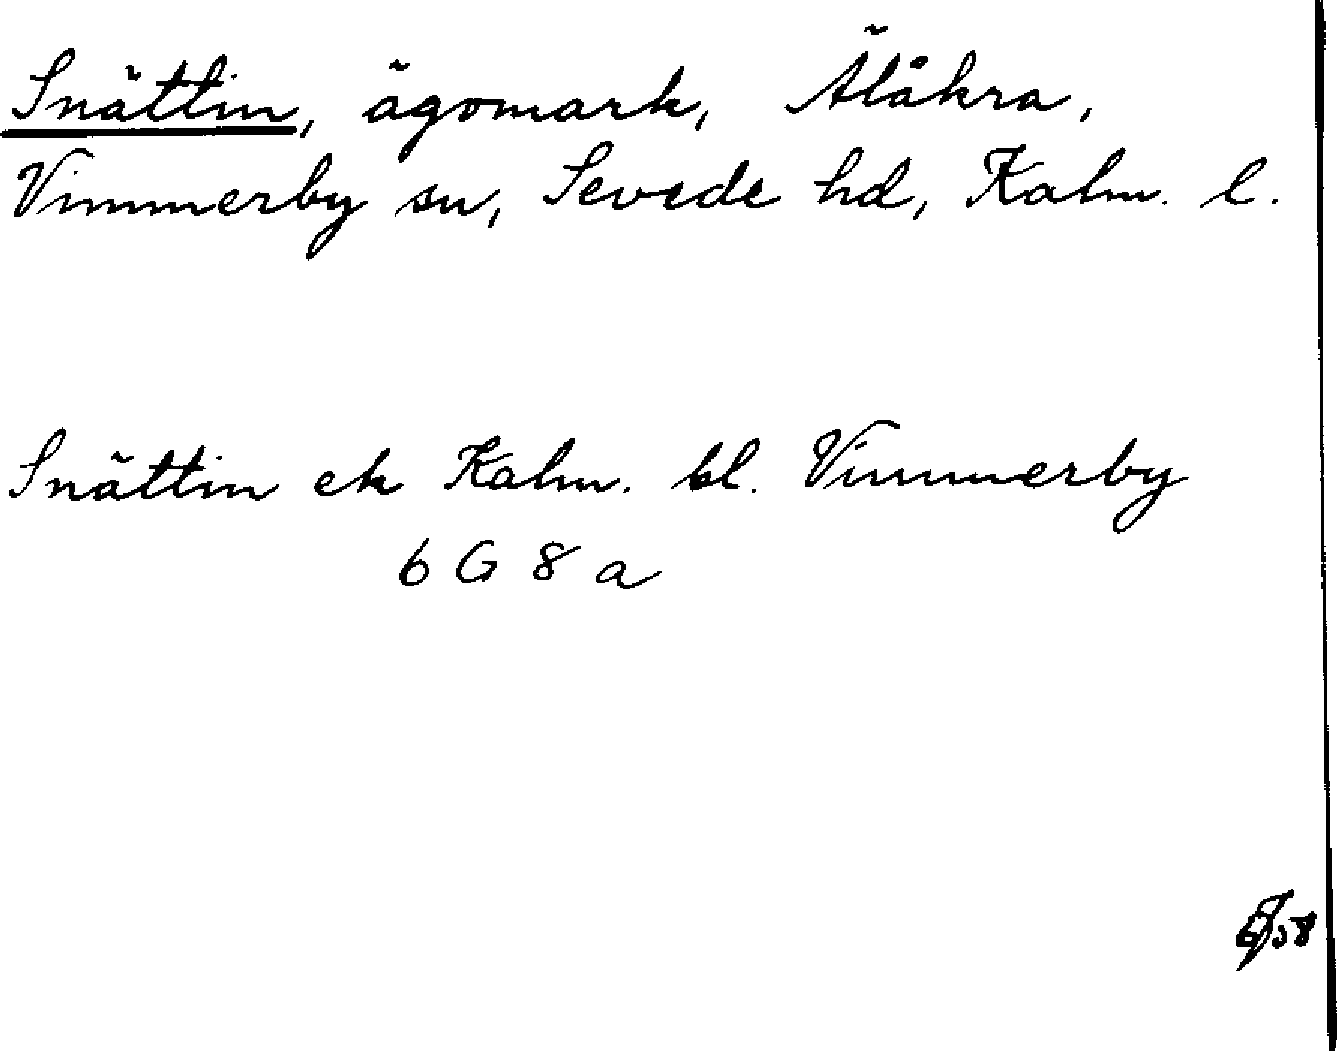 Snättin, ägomark, Älåkra,
Vimmerby sn, Sevede hd, Kalm. l.
Snättin ek Kalm. bl. Vimmerby
6 G 8 a